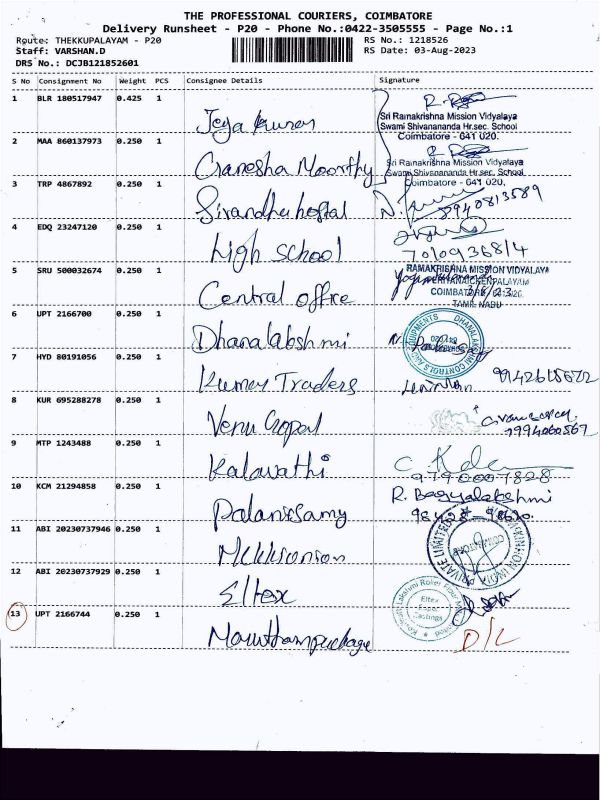 THE PROFESSIONAL COURIERS, COIMBATORE
Delivery Runsheet - P20 - Phone No.:0422-3505555 - Page No.:1
Route: THEKKUPALAYAM - P20
RS No.: 1218526
Staff: VARSHAN.D
RS Date: 03-Aug-2023
DRS No.: DCJB121852601
S No Consignment No Weight PCS Consignee Details Signature
1 BLR 180517947 0.425 1 Jeya kumar
Sri Ramakrishna Mission Vidyalaya
Swami Shivananda Hr.sec. School
Coimbatore - 641 020.
2 MAA 860137973 0.250 1 Ganesha Moorthy
Sri Ramakrishna Mission Vidyalaya
Swami Shivananda Hr.sec. School
Coimbatore - 641 020.
3 TRP 4867892 0.250 1 Sivandhu hostal
8940813589
4 EDQ 23247120 0.250 1 high school
5 SRU 500032674 0.250 1 Central office
RAMAKRISHNA MISSION VIDYALAYA
PERIYANAICKENPALAYAM
COIMBATORE
TAMIL NADU
6 UPT 2166700 0.250 1 Dhanalakshmi
7 HYD 80191056 0.250 1 Kumar Traders
8 KUR 695288278 0.250 1 Venu Gopal
7994060567
9 MTP 1243488 0.250 1 Kalavathi
9790007828
10 KCM 21294858 0.250 1 Palanisamy
R. Bagyalakshmi
11 ABI 20230737946 0.250 1
PRIVATE LIMITED
12 ABI 20230737929 0.250 1 Eltex
Eltex
Super
Castings
13 UPT 2166744 0.250 1
D/L